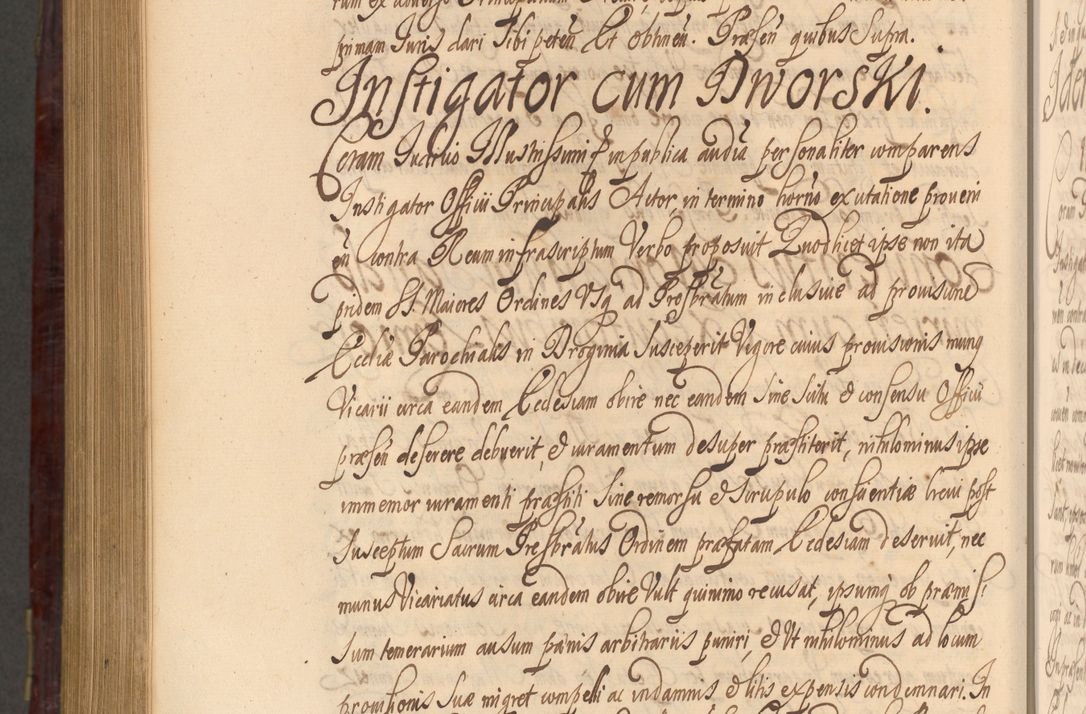 primam Juris dari sibi peteñ Et obtineñ. Præseñ quibus Supra.
Instigator cum Dworski.
Coram Judicio Illustrissimi in publica audiã personaliter comparens
Instigator Officii Principalis Actor, in termino horno ex citatione proveni
eñ contra Reum infrascriptum Verbo proposuit Quod licet ipse non ita
pridem SS. Maiores Ordines Usq ad Presbratum inclusive ad provisione
Eccliæ Parochialis in Droginia Susceperit Vigore cuius provisionis munq
Vicarii circa eandem Ecclesiam obire nec eandem sine scitu & consensu Officii
præseñ deserere debuerit, & iuramentum desuper præstiterit, nihilominus ipse
immemor iuramenti præstiti sine remorsu & scrupulo conscientiæ brevi post
Susceptum Sacrum Presbratus Ordinem præfatam Ecclesiam deseruit, nec
munus Vicariatus circa eandem obire Vult quinimo recusat, ipsumq ob præmis
sum temerarium ausum pænis arbitrariis puniri, & Ut nihilominus ad locum
provisionis suæ migret compelli ac in damnis & litis expensis condemnari. In